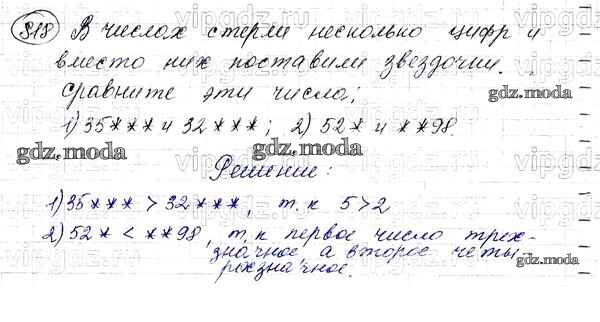 818 В числах стерли несколько цифр и
вместо них поставили звездочки.
Сравните эти числа:
1) 35*** и 32***; 2) 52* и **98.
gdz.moda
gdz.moda
Решение:
1) 35*** > 32***, т.к 5>2
2) 52* < **98, т.к первое число трех-
значное а второе четы-
рехзначное.
gdz.moda
vipgdz